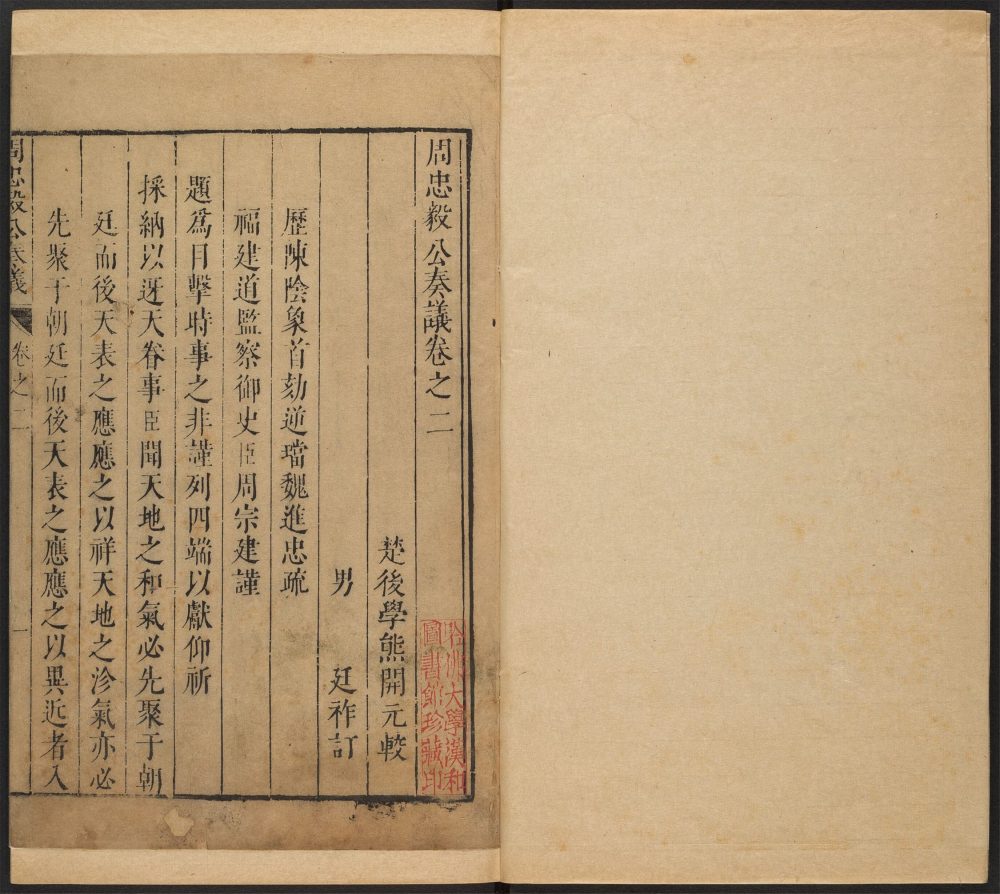 周忠毅公奏議卷之二
楚後學熊開元較
男 廷祚訂
歷陳陰象首劾逆璫魏進忠疏
福建道監察御史臣周宗建謹
題爲目擊時事之非謹列四端以獻仰祈
採納以迓天眷事臣聞天地之和氣必先聚于朝
廷而後天表之應應之以祥天地之沴氣亦必
先聚于朝廷而後天表之應應之以異近者入
周忠毅公奏議 卷之二 一
哈佛大學漢和
圖書館珍藏印